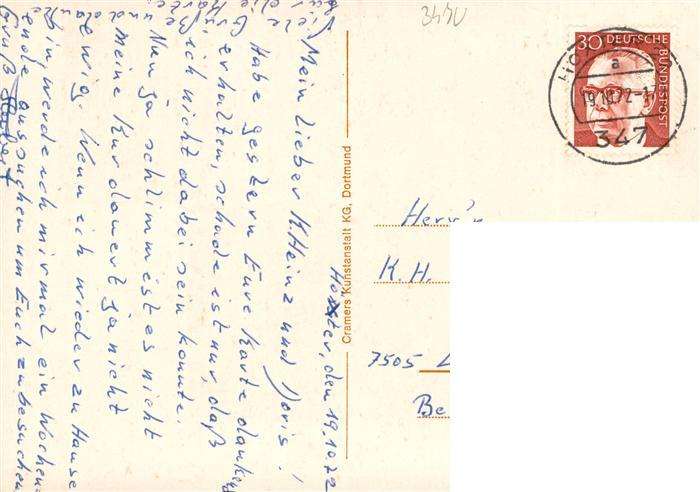 Höxter, den 19.10.72
Mein lieber K. Heinz und Doris!
Habe gestern Eure Karte dankend
erhalten, schade ist nur, daß
ich nicht dabei sein konnte.
Nun ja schlimm ist es nicht
meine Kur dauert ja nicht
ewig. Wenn ich wieder zu Hause
bin, werde ich mir mal ein Wochen
ende aussuchen um Euch zu besuchen
Gruß
Cramers Kunstanstalt KG, Dortmund
30 DEUTSCHE
BUNDESPOST
a
19.10.72-17
347
Herrn
K. H.
7505
Be